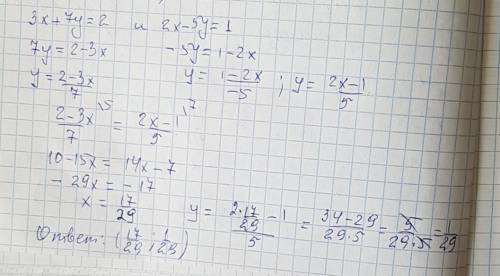 3x+7y=2 и 2x-5y=1
7y=2-3x -5y=1-2x
y=\frac{2-3x}{7} y=\frac{1-2x}{-5} ; y=\frac{2x-1}{5}
\frac{2-3x}{7}^{\5} = \frac{2x-1}{5}^{\7}
10-15x = 14x-7
-29x = -17
x = \frac{17}{29} y = \frac{\frac{2·17}{29}-1}{5} = \frac{34-29}{29·5} = \frac{5}{29·5} = \frac{1}{29}
Ответ: (\frac{17}{29}; \frac{1}{29})